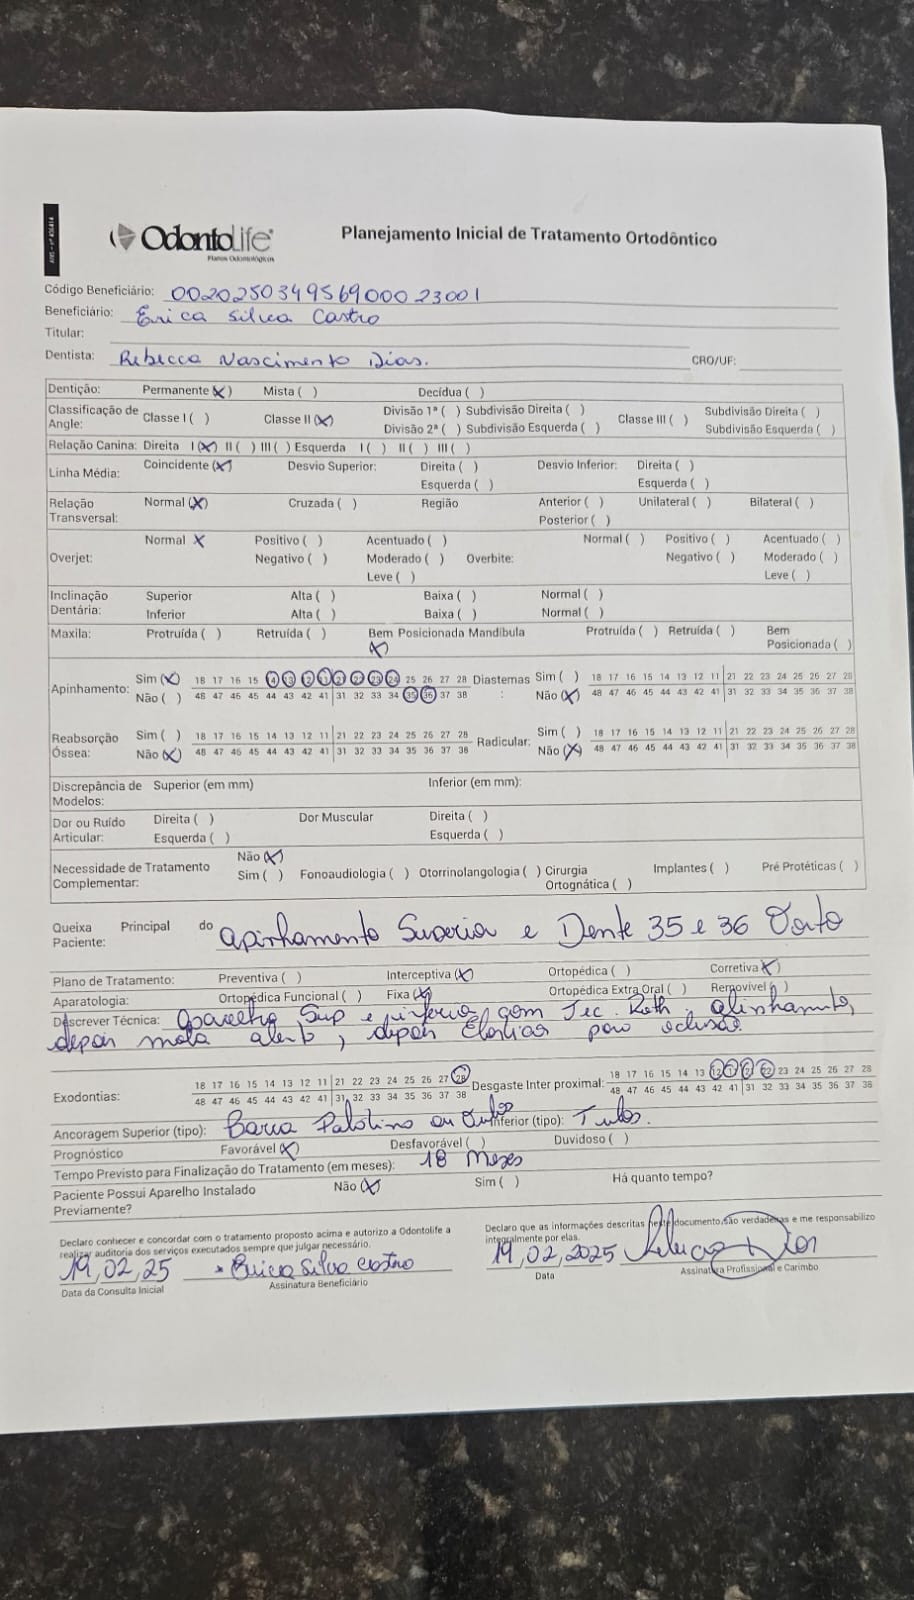 ANS - nº 40641-4
OdontoLife
Planos Odontológicos
Planejamento Inicial de Tratamento Ortodôntico
Código Beneficiário: 00202503495690002 3001
Beneficiário: Erica Silva Castro
Titular:
Dentista: Rebecca Nascimento Dias. CRO/UF:
Dentição: Permanente (X) Mista ( ) Decídua ( )
Classificação de Angle: Classe I ( ) Classe II (X) Divisão 1ª ( ) Subdivisão Direita ( ) Classe III ( ) Subdivisão Direita ( )
Divisão 2ª ( ) Subdivisão Esquerda ( ) Subdivisão Esquerda ( )
Relação Canina: Direita I (X) II ( ) III ( ) Esquerda I ( ) II ( ) III ( )
Linha Média: Coincidente (X) Desvio Superior: Direita ( ) Desvio Inferior: Direita ( )
Esquerda ( ) Esquerda ( )
Relação Transversal: Normal (X) Cruzada ( ) Região Anterior ( ) Unilateral ( ) Bilateral ( )
Posterior ( )
Overjet: Normal X Positivo ( ) Acentuado ( ) Overbite: Normal ( ) Positivo ( ) Acentuado ( )
Negativo ( ) Moderado ( ) Negativo ( ) Moderado ( )
Leve ( ) Leve ( )
Inclinação Dentária: Superior Alta ( ) Baixa ( ) Normal ( )
Inferior Alta ( ) Baixa ( ) Normal ( )
Maxila: Protruída ( ) Retruída ( ) Bem Posicionada (X) Mandíbula Protruída ( ) Retruída ( ) Bem Posicionada ( )
Apinhamento: Sim (X) 18 17 16 15 14 13 12 11 21 22 23 24 25 26 27 28 Diastemas: Sim ( ) 18 17 16 15 14 13 12 11 21 22 23 24 25 26 27 28
Não ( ) 48 47 46 45 44 43 42 41 31 32 33 34 35 36 37 38 Não (X) 48 47 46 45 44 43 42 41 31 32 33 34 35 36 37 38
Reabsorção Óssea: Sim ( ) 18 17 16 15 14 13 12 11 21 22 23 24 25 26 27 28 Radicular: Sim ( ) 18 17 16 15 14 13 12 11 21 22 23 24 25 26 27 28
Não (X) 48 47 46 45 44 43 42 41 31 32 33 34 35 36 37 38 Não (X) 48 47 46 45 44 43 42 41 31 32 33 34 35 36 37 38
Discrepância de Modelos: Superior (em mm) Inferior (em mm):
Dor ou Ruído Articular: Direita ( ) Dor Muscular Direita ( )
Esquerda ( ) Esquerda ( )
Necessidade de Tratamento Complementar: Não (X)
Sim ( ) Fonoaudiologia ( ) Otorrinolangologia ( ) Cirurgia Ortognática ( ) Implantes ( ) Pré Protéticas ( )
Queixa Principal do Paciente: apinhamento Superior e Dente 35 e 36 torto
Plano de Tratamento: Preventiva ( ) Interceptiva (X) Ortopédica ( ) Corretiva X )
Aparatologia: Ortopédica Funcional ( ) Fixa (X) Ortopédica Extra Oral ( ) Removível ( )
Descrever Técnica: aparelho Sup e inferior, com Tec. Roth, alinhamento,
depois mola aberta, depois Elasticos para oclusão
Exodontias: 18 17 16 15 14 13 12 11 21 22 23 24 25 26 27 28 Desgaste Inter proximal: 18 17 16 15 14 13 12 11 21 22 23 24 25 26 27 28
48 47 46 45 44 43 42 41 31 32 33 34 35 36 37 38 48 47 46 45 44 43 42 41 31 32 33 34 35 36 37 38
Ancoragem Superior (tipo): Barra Palatina ou tubos Inferior (tipo): Tubos.
Prognóstico Favorável (X) Desfavorável ( ) Duvidoso ( )
Tempo Previsto para Finalização do Tratamento (em meses): 18 Meses
Paciente Possui Aparelho Instalado Previamente? Não (X) Sim ( ) Há quanto tempo?
Declaro conhecer e concordar com o tratamento proposto acima e autorizo a Odontolife a
realizar auditoria dos serviços executados sempre que julgar necessário.
19,02,25 Erica Silva Castro
Data da Consulta Inicial Assinatura Beneficiário
Declaro que as informações descritas neste documento são verdadeiras e me responsabilizo
integralmente por elas.
19,02,2025 Rebecca Dias
Data Assinatura Profissional e Carimbo